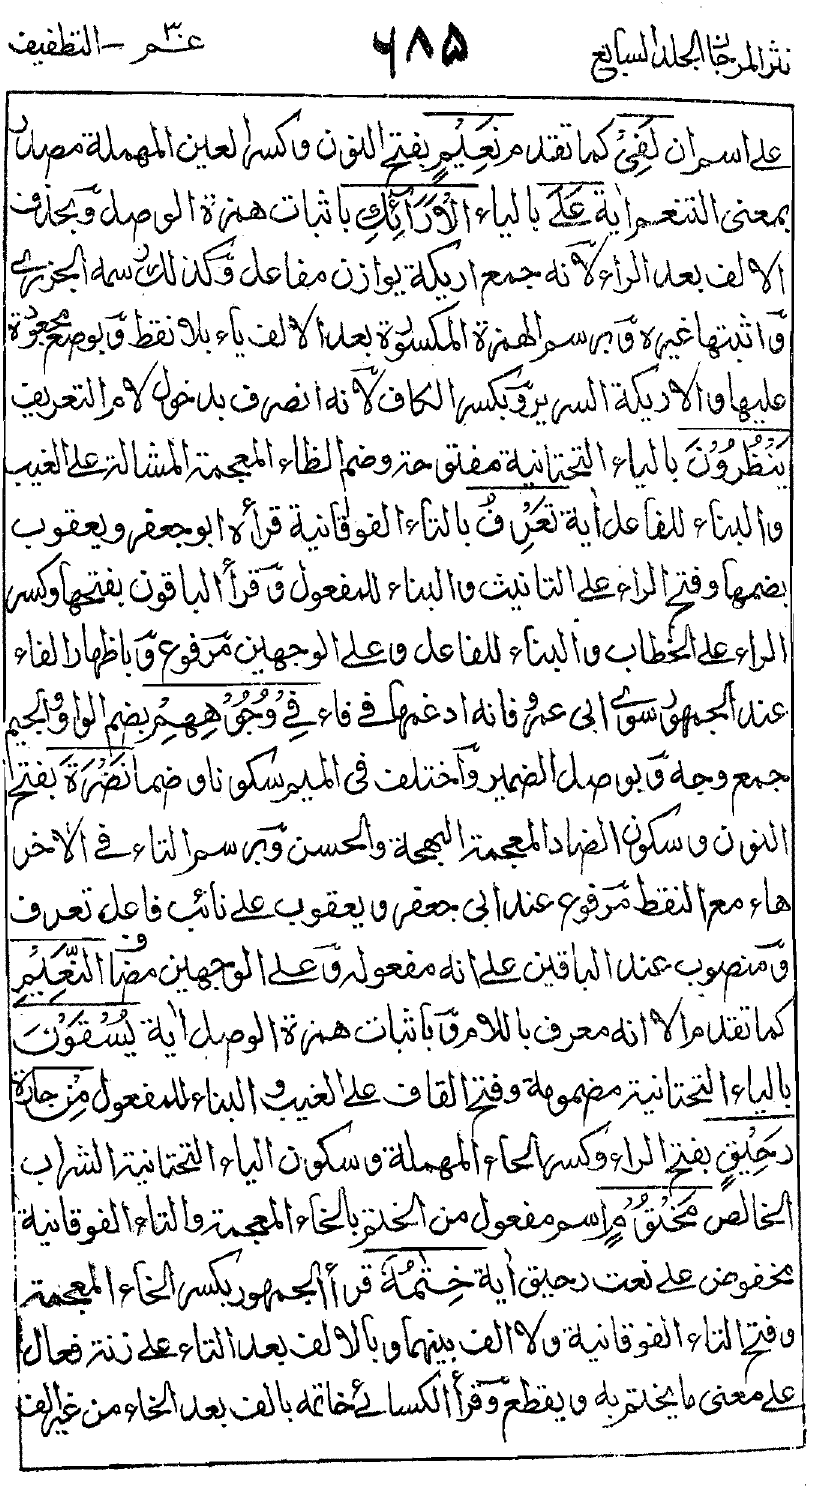 نثر المرجان الجلد السابع ٦٨٥ عم ٣٠ – التطفيف
على اسم ان لَفِيْ كما تقدم نَعِيْمٍ بفتح النون وكسر العين المهملة مصدر
بمعنى التنعم اٰية عَلَى بالياء الْاَرَآئِكِ باثبات همزة الوصل وَبحذف
الالف بعد الراء لانه جمع اريكة يوازن مفاعل وَكذلك رسمه الجزرى
وَاثبتها غيره وَبرسم الهمزة المكسورة بعد الالف ياء بلا نقط وَبوضع مجعودة
عليها والاريكة السرير وَبكسر الكاف لانه انصرف بدخول لام التعريف
يَنْظُرُوْنَ بالياء التحتانية مفتوحة وضم الظاء المعجمة المشالة على الغيب
والبناء للفاعل اٰية تَعْرِفُ بالتاء الفوقانية قرأه ابو جعفر ويعقوب
بضمها وفتح الراء على التانيث والبناء للمفعول وَقرأ الباقون بفتحها وكسر
الراء على الخطاب والبناء للفاعل وعلى الوجهين مَرفوع وَباظهار الفاء
عند الجمهور سوى ابى عمرو فانه ادغمها فى فاء فِيْ وُجُوْهِهِمْ بضم الواو والجيم
جمع وجه وَبوصل الضمير وَاختلف فى الميم سكونا وضما نَضْرَةَ بفتح
النون وسكون الضاد المعجمة البهجة والحسن وَبرسم التاء فى الاخر
هاء مع النقط مَرفوع عند ابى جعفر ويعقوب على نائب فاعل تعرف
وَمنصوب عند الباقين على انه مفعوله وَعلى الوجهين مضاف النَّعِيْمِ
كما تقدم الا انه معرف باللام وَباثبات همزة الوصل اٰية يُسْقَوْنَ
بالياء التحتانية مضمومة وفتح القاف على الغيب والبناء للمفعول مِنْ جارة
رَحِيْقٍ بفتح الراء وكسر الحاء المهملة وسكون الياء التحتانية الشراب
الخالص مَخْتُوْمٍ اسم مفعول من الختم بالخاء المعجمة والتاء الفوقانية
مخفوض على نعت رحيق اٰية خِتٰمُهٗ قرأ الجمهور بكسر الخاء المعجمة
وفتح التاء الفوقانية ولا الف بينهما وبالالف بعد التاء على زنة فعال
على معنى ما يختم به ويقطع وَقرأ الكسائى خاتمه بالف بعد الخاء من غير الف